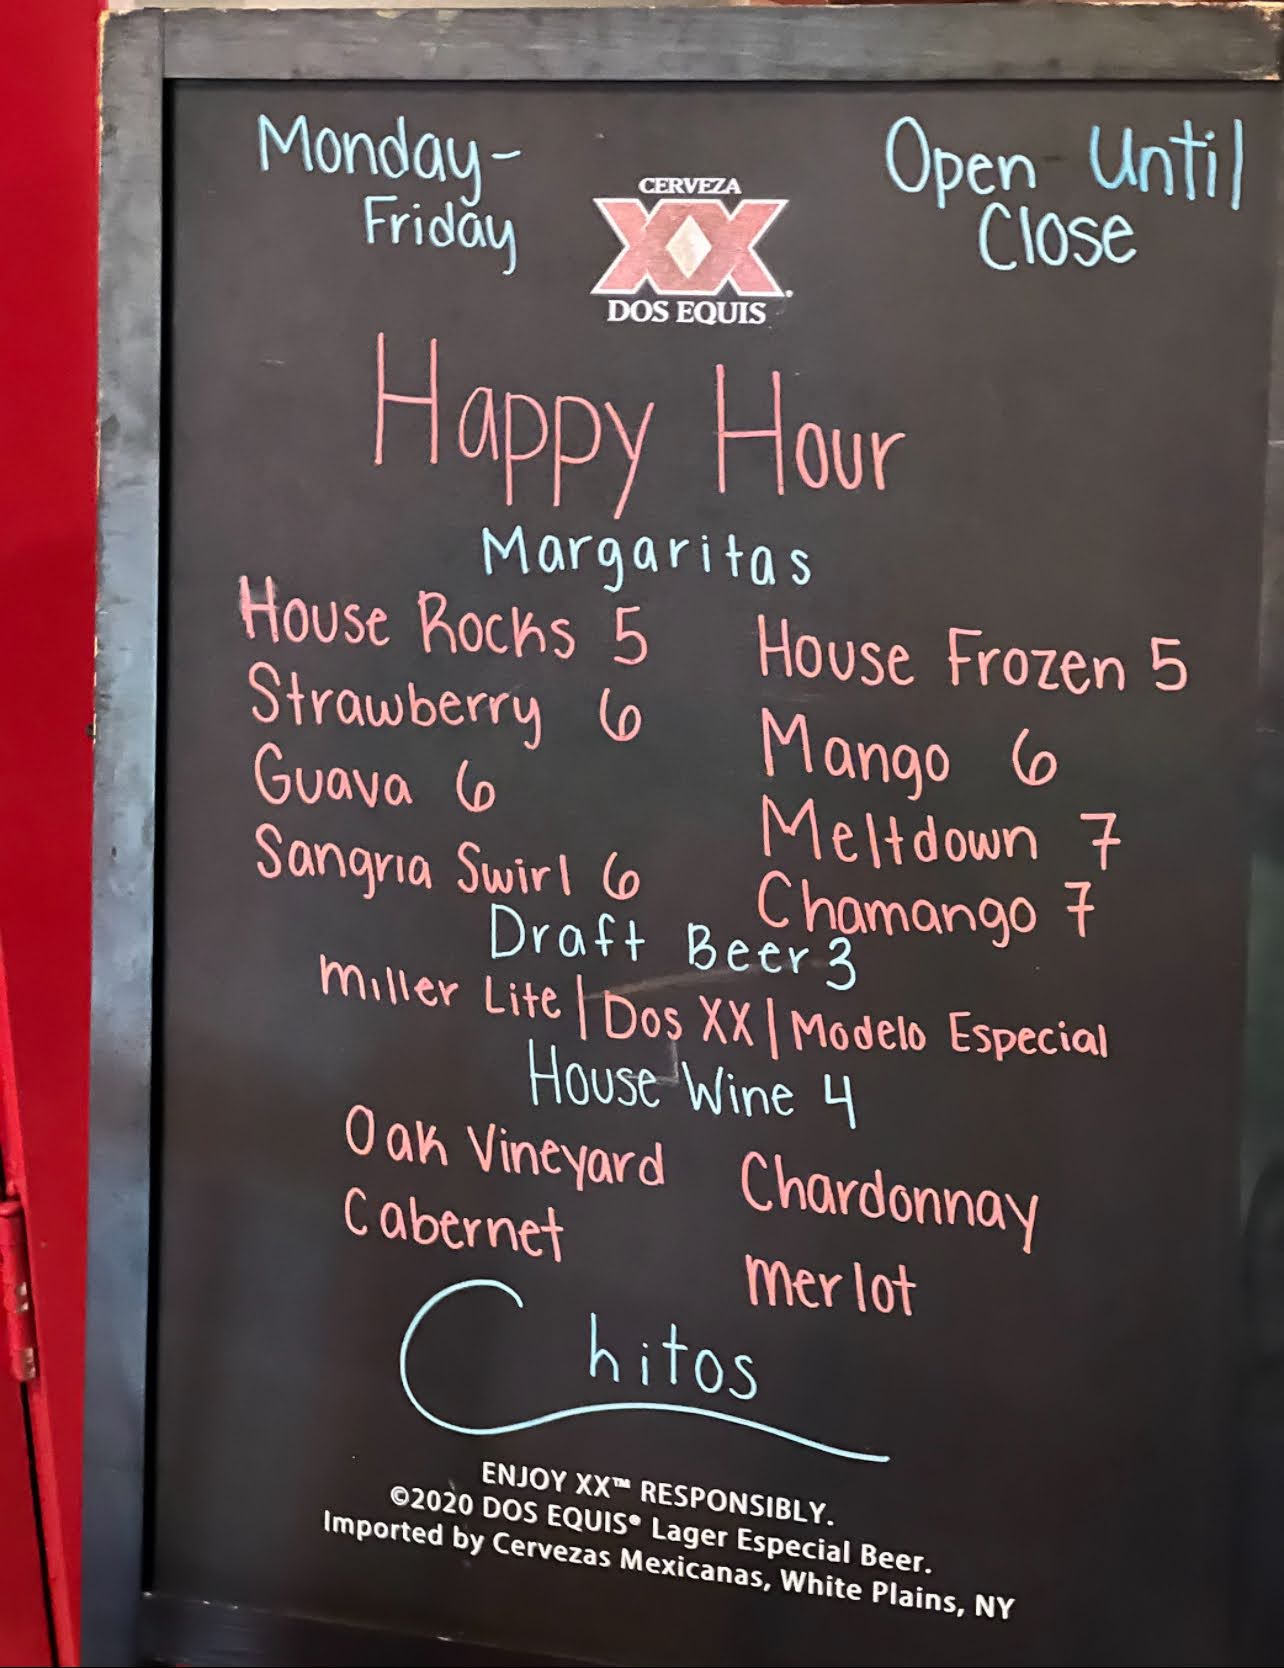 Monday-
Friday
Open Until
Close
CERVEZA
XX
DOS EQUIS
Happy Hour
Margaritas
House Rocks 5
House Frozen 5
Strawberry 6
Mango 6
Guava 6
Meltdown 7
Sangria Swirl 6
Chamango 7
Draft Beer 3
Miller Lite | Dos XX | Modelo Especial
House Wine 4
Oak Vineyard
Chardonnay
Cabernet
Merlot
Chitos
ENJOY XX™ RESPONSIBLY.
©2020 DOS EQUIS® Lager Especial Beer.
Imported by Cervezas Mexicanas, White Plains, NY